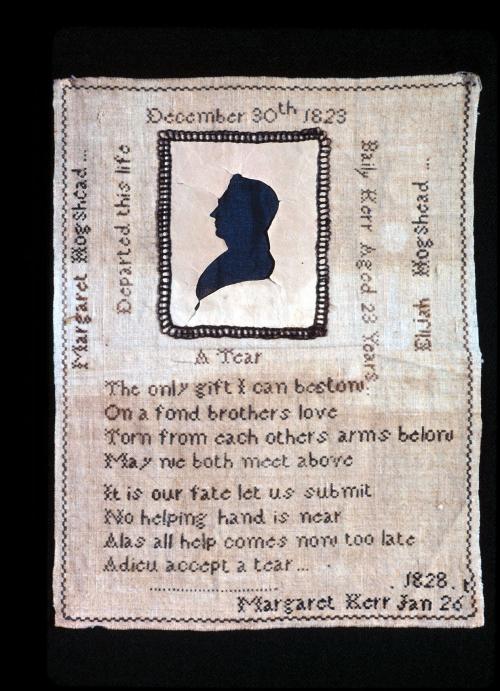 December 30th 1823
Margaret Hogshead ...
Departed this life
Baily Kerr Aged 23 Years
Elijah Hogshead ...
A Tear
The only gift I can bestow
On a fond brothers love
Torn from each others arms below
May we both meet above
It is our fate let us submit
No helping hand is near
Alas all help comes now too late
Adieu accept a tear ...
1828.
Margaret Kerr Jan 26